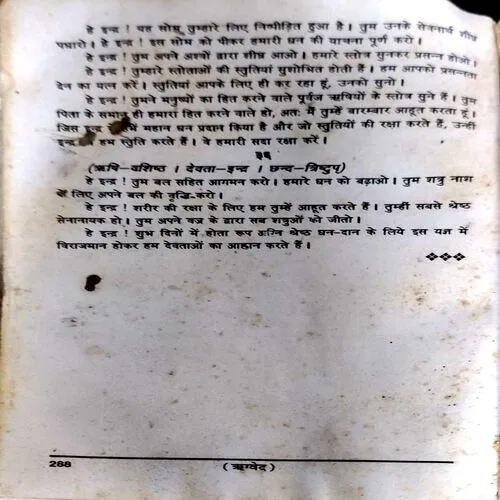 हे इन्द्र ! यह सोम तुम्हारे लिए निष्पीड़ित हुआ है । तुम उनके सेवनार्थ शीघ्र
पधारो । हे इन्द्र ! इस सोम को पीकर हमारी धन की याचना पूर्ण करो ।
हे इन्द्र ! तुम अपने अश्वों द्वारा शीघ्र आओ । हमारे स्तोत्र सुनकर प्रसन्न होओ ।
हे इन्द्र ! तुम्हारे स्तोताओं की स्तुतियां सुशोभित होती हैं । हम आपको प्रसन्नता
देन का यत्न करें । स्तुतियां आपके लिए ही कर रहा हूं, उनको सुनो ।
हे इन्द्र ! तुमने मनुष्यों का हित करने वाले पूर्वज ऋषियों के स्तोत्र सुने हैं । तुम
पिता के समान ही हमारा हित करने वाले हो, अतः मैं तुम्हें बारम्बार आहूत करता हूं ।
जिस इन्द्र महान धन प्रदान किया है और जो स्तुतियों की रक्षा करते हैं, उन्हीं
हम स्तुति करते हैं । वे हमारी सदा रक्षा करें ।
(ऋषि-वशिष्ठ । देवता-इन्द्र । छन्द-त्रिष्टुप्)
हे इन्द्र ! तुम बल सहित आगमन करो । हमारे धन को बढ़ाओ । तुम शत्रु नाश
के लिए अपने बल की वृद्धि-करो ।
हे इन्द्र ! शरीर की रक्षा के लिए हम तुम्हें आहूत करते हैं । तुम्हीं सबसे श्रेष्ठ
सेनानायक हो । तुम अपने वज्र के द्वारा सब शत्रुओं को जीतो ।
हे इन्द्र ! शुभ दिनों में होता रूप अग्नि श्रेष्ठ धन-दान के लिये इस यज्ञ में
विराजमान होकर हम देवताओं का आह्वान करते हैं ।
288
(ऋग्वेद)